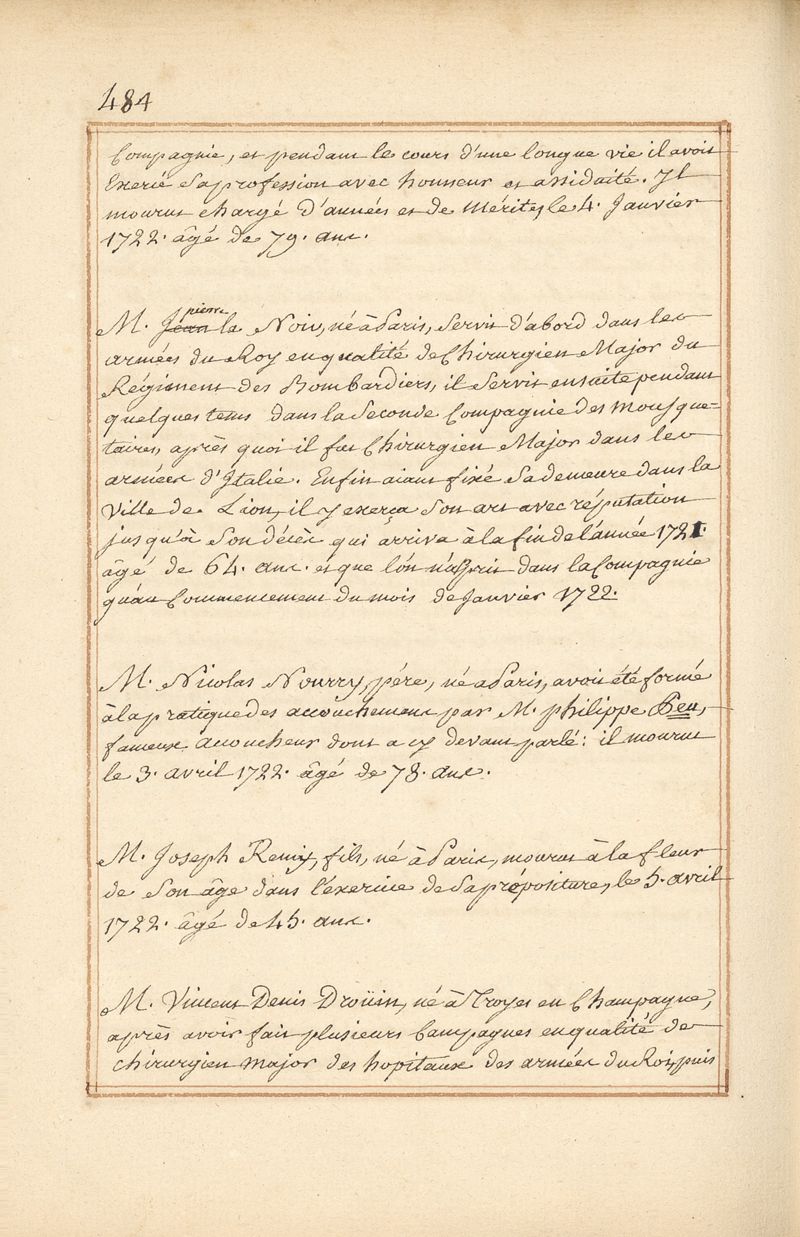 484
Compagnie, et pendant le cours d'une longue vie il avoit
Exercé Sa profession avec honneur et assiduité. Jl
mourut chargé d'années et de Mérites, le 4. Janvier
1722. âgé de 79. ans.
pierre
M. Jean la Noix, né à Paris, Servit d'abord dans les
armées du Roy en qualité de Chirurgien Major du
Régiment des Bombardiers, il Servit ensuite pendant
quelques tems dans la Seconde Compagnie des Mousque-
taires, après quoi il fut Chirurgien Major dans les
armées d'Italie. Enfin aiant fixé Sa demeure dans la
Ville de Lion, il y exerça Son art avec réputation
jusqu'à Son décès qui arriva à la fin de l'année 1721.
âgé de 64. ans. et que l'on n'apprit dans la Compagnie
qu'au Commencement du mois de Janvier 1722.
M. Nicolas Nourry, pére, né a Paris, avoit été formé
à la pratique des accouchemens par M. philippe Peu,
fameux accoucheur dont a cy devant parlé: il mourut
le 3. avril 1722. âgé de 78. ans.
M. Joseph Remy, fils, né à Paris, mourut à la fleur
de Son âge dans l'éxercice de Sa prépositure, le 5. avril
1722. âgé de 45. ans.
M. Vincent Denis Droüin, né à Troyes en Champagne,
après avoir fait plusieurs Campagnes en qualité de
Chirurgien Major des hopitaux des armées du Roi, puis